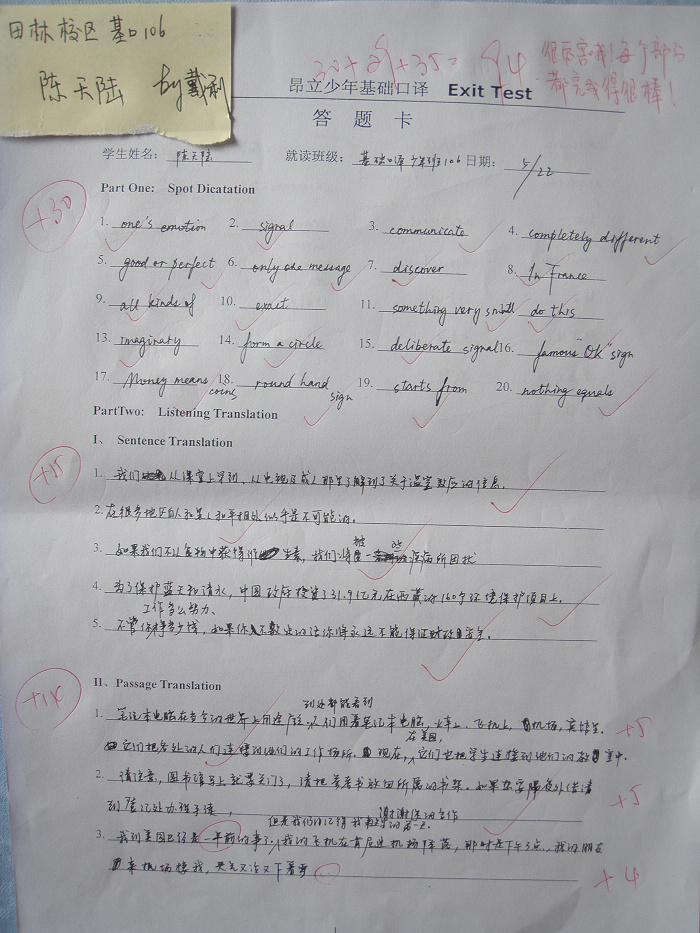 田林校区 基口106
陈天陆 by戴
30+29+35=94 很厉害哦!每个部分
都完成得很棒!
昂立少年基础口译 Exit Test
答 题 卡
学生姓名: 陈天陆 就读班级: 基础口译少年班106 日期: 5/22
+30
Part One: Spot Dicatation
1. one's emotion 2. signal 3. communicate 4. completely different
5. good or perfect 6. only one message 7. discover 8. In France
9. all kinds of 10. exact 11. something very small do this
13. imaginary 14. form a circle 15. deliberate signal 16. famous "OK" sign
17. Money means coins 18. round hand sign 19. starts from 20. nothing equals
PartTwo: Listening Translation
+15
I、 Sentence Translation
1. 我们从课堂上学到,从电视及成人那里了解到了关于温室效应的信息.
2. 在很多地区白人和黑人和平相处似乎是不可能的.
3. 如果我们不从食物中获得维生素,我们将被一些疾病所困扰
4. 为了保护蓝天和清水,中国政府投资了31.9亿元在西藏的160个环境保护项目上.
工作多么努力、
5. 不管你挣多少钱,如果你不的话你将永远不能保证财政安全.
+14
II、Passage Translation
到处都能看到
1. 笔记本电脑在当今的世界上用途广泛,人们用着笔记本电脑,火车上、飞机上,机场,宾馆里. +5
在美国,
它们把各处的人们连接到他们的工作场所.现在,它们也把学生连接到他们的教室中.
2. 请注意,图书馆马上就要关门了,请把参考书放回所属的书架.如果您要额外借请 +5
到登记处办理手续, 谢谢您的合作
但是我仍记得我的第一天.
3. 我到美国已经是一年前的事了,我的飞机在肯尼迪机场降落,那时是下午3点,我的朋友
来机场接我,天气又冷又下着雪 +4